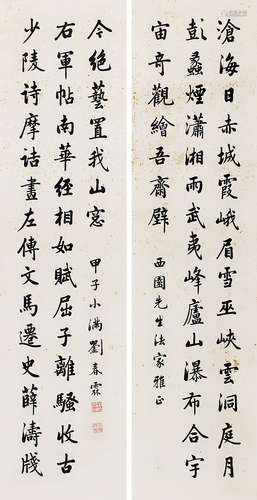 滄海日赤城霞峨眉雪巫峽雲洞庭月
彭蠡煙瀟湘雨武夷峰廬山瀑布合宇
宙奇觀繪吾齋壁
西園先生法家雅正
少陵詩摩詰畫左傳文馬遷史薛濤牋
右軍帖南華經相如賦屈子離騷收古
今絕藝置我山窓
甲子小滿劉春霖